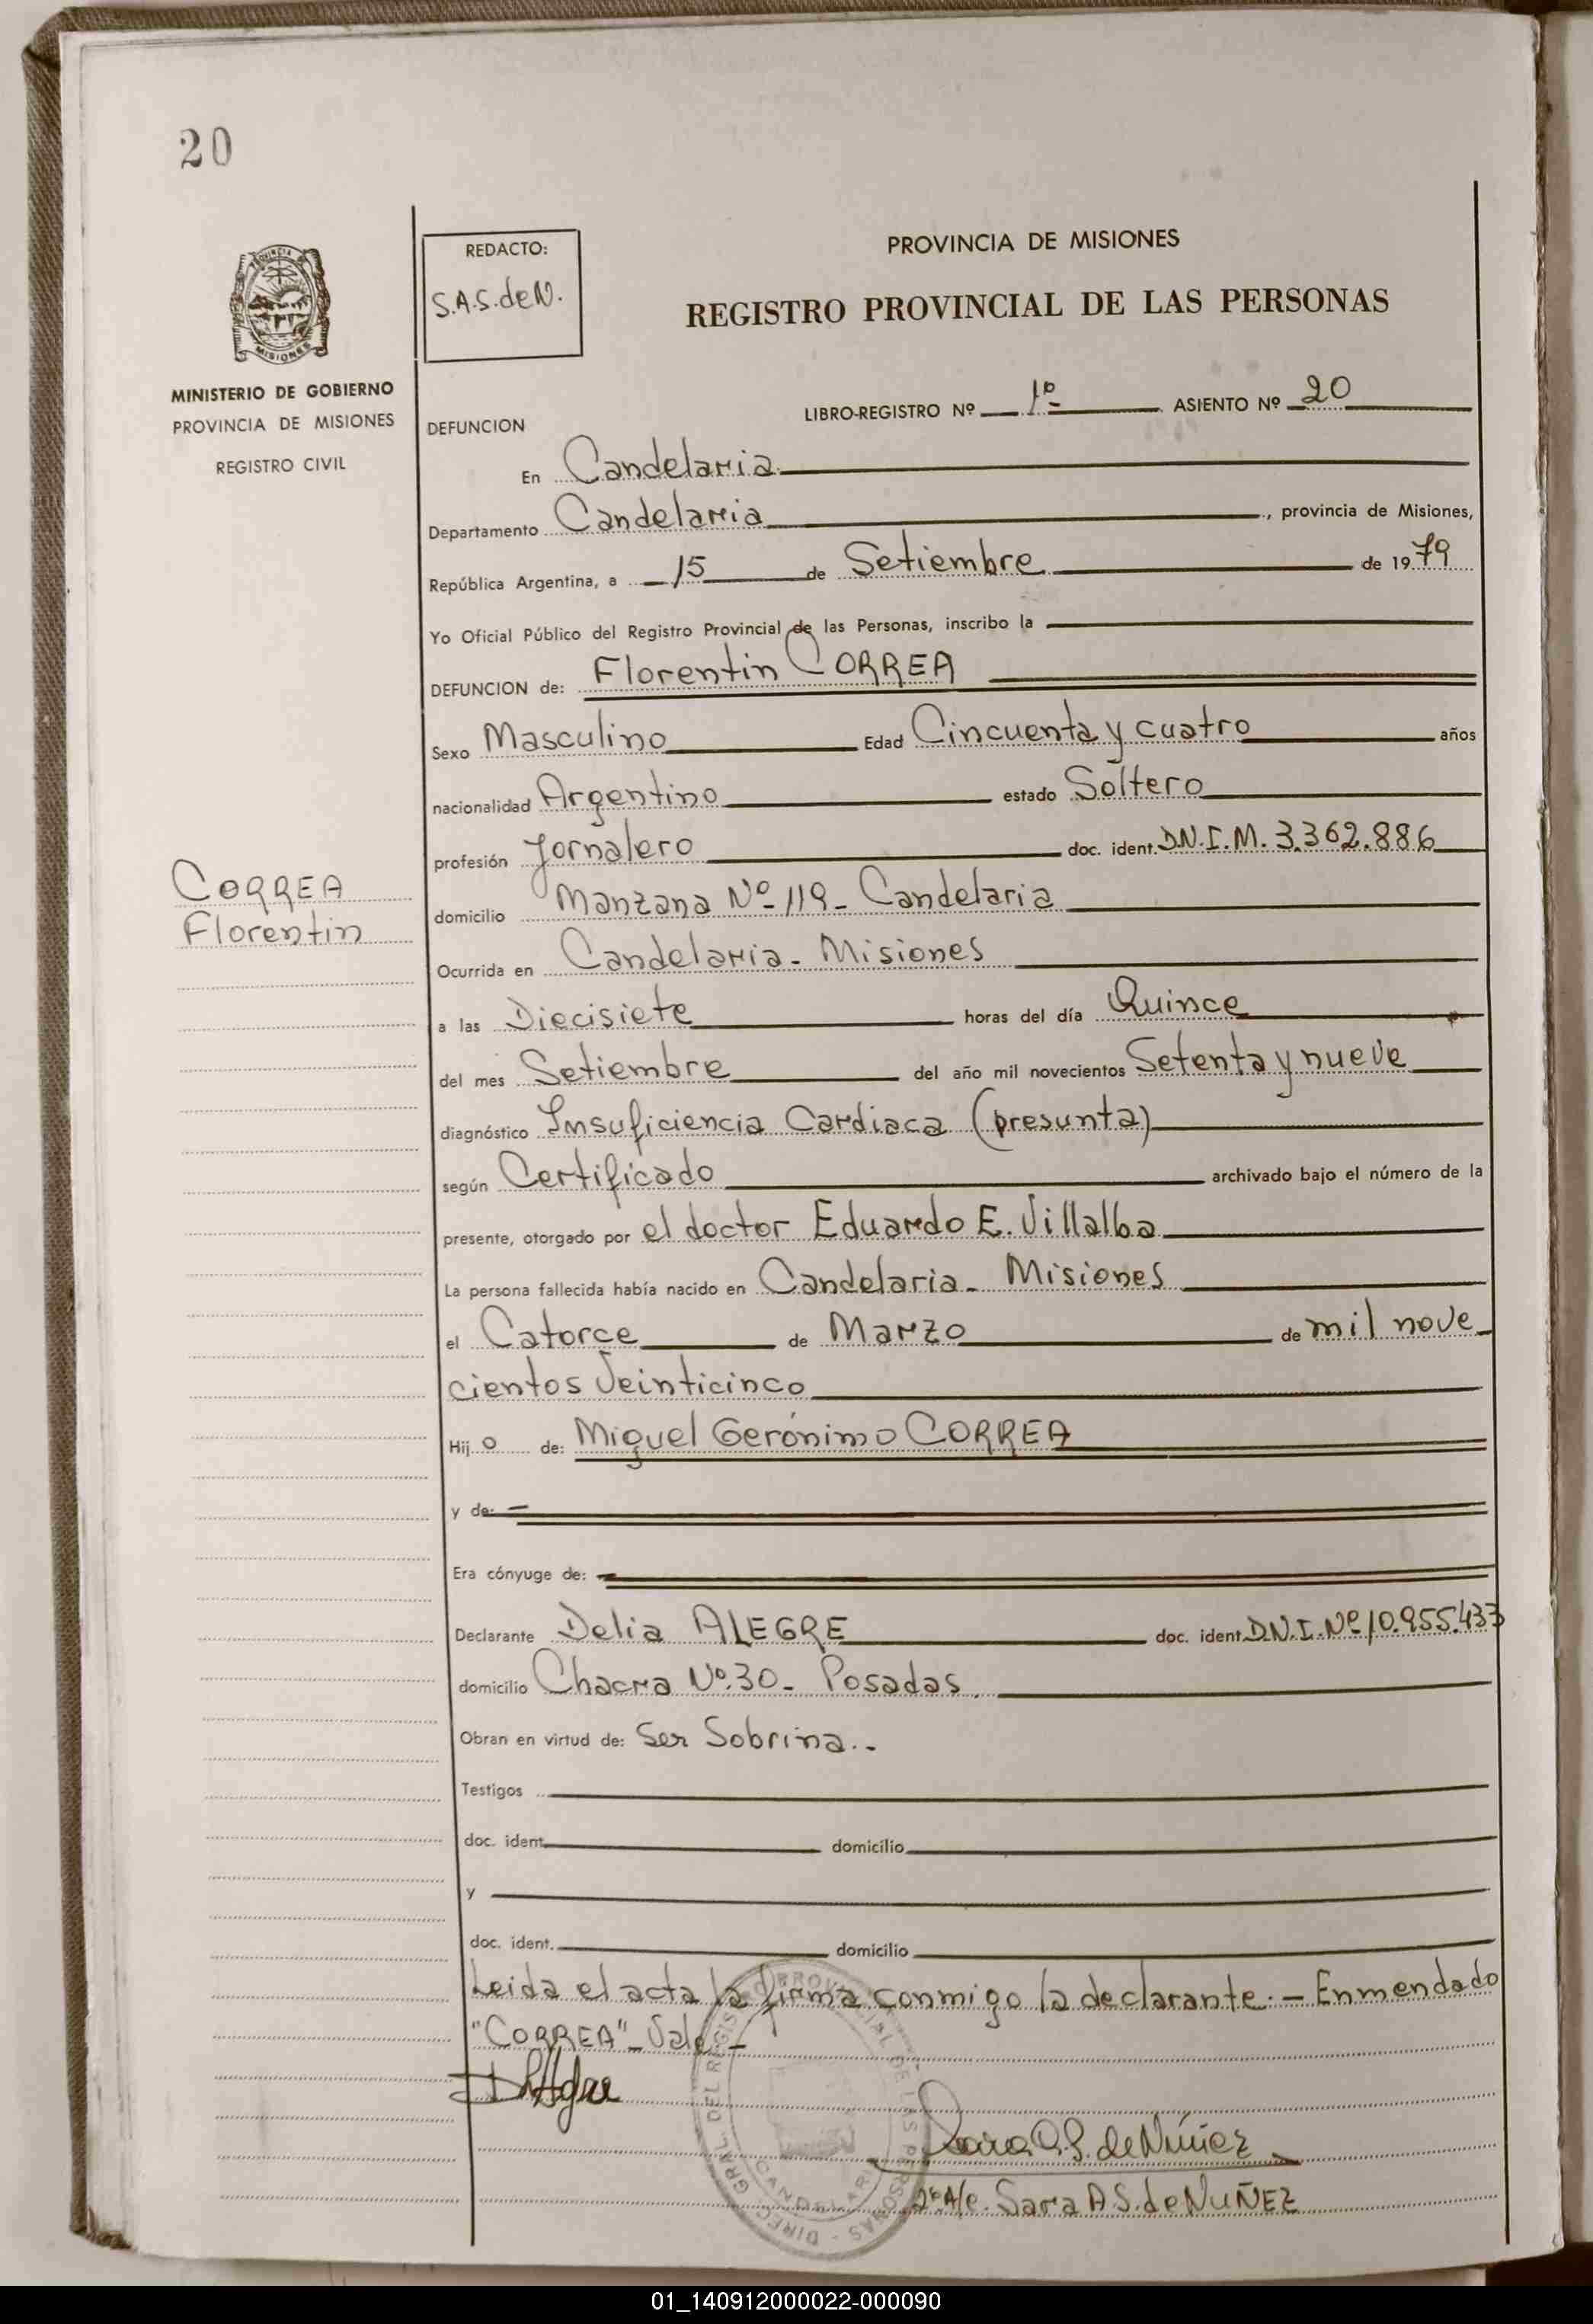 20
MINISTERIO DE GOBIERNO
PROVINCIA DE MISIONES
REGISTRO CIVIL
REDACTO:
S.A.S. de N.
PROVINCIA DE MISIONES
REGISTRO PROVINCIAL DE LAS PERSONAS
LIBRO-REGISTRO Nº 1º ASIENTO Nº 20
DEFUNCION
En Candelaria
Departamento Candelaria, provincia de Misiones,
República Argentina, a 15 de Setiembre de 1979
Yo Oficial Público del Registro Provincial de las Personas, inscribo la
DEFUNCION de: Florentin CORREA
Sexo Masculino Edad Cincuenta y cuatro años
nacionalidad Argentino estado Soltero
profesión Jornalero doc. ident. D.N.I.M. 3.362.886
CORREA
Florentin
domicilio Manzana Nº 119 - Candelaria
Ocurrida en Candelaria - Misiones
a las Diecisiete horas del día Quince
del mes Setiembre del año mil novecientos Setenta y nueve
diagnóstico Insuficiencia Cardiaca (presunta)
según Certificado archivado bajo el número de la
presente, otorgado por el doctor Eduardo E. Villalba
La persona fallecida había nacido en Candelaria - Misiones
el Catorce de Marzo de mil nove
cientos Veinticinco
Hijo de: Miguel Gerónimo CORREA
y de:
Era cónyuge de:
Declarante Delia ALEGRE doc. ident. D.N.I. Nº 10.955.433
domicilio Chacra Nº. 30 - Posadas.
Obran en virtud de: Ser Sobrina.-
Testigos
doc. ident. domicilio
y
doc. ident. domicilio
Leida el acta la firma conmigo la declarante.- Enmendado
"CORREA" - Vale -
Sara A. S. de Núñez
Sara A S. de NUÑEZ
01_140912000022-000090